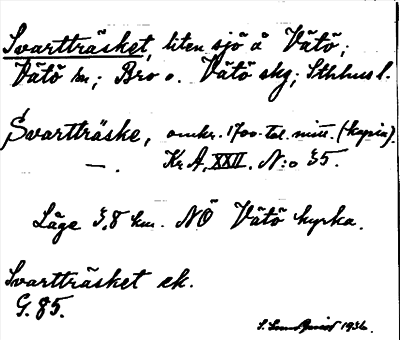 Svartträsket, liten sjö å Vätö;
Vätö sn; Bro o. Vätö skg; Sthlms l.
Svartträske, omkr. 1700-tal. mitt. (kopia).
—. Kr A, XXII. N:o 35.
Läge 3,8 km. NÖ Vätö kyrka.
Svartträsket ek.
G. 85.
S. 1936.